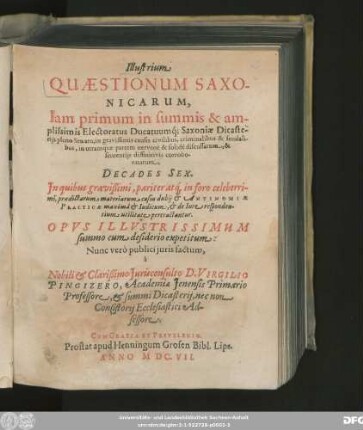 Illustrium
QUÆSTIONUM SAXO-
NICARUM,
Iam primum in summis & am-
plissimis Electoratus Ducatuumq́; Saxoniæ Dicaste-
rijs pleno Senatu, in gravissimis causis civilibus, criminalibus & feudali-
bus, in utramque partem nervosè & solidè discussarum, &
decisarum
DECADES SEX.
In quibus gravissimi, pariter atq́, in foro celeberri-
mi, prædictarum materiarum casus dubij & ANTINOMIÆ
PRACTICÆ maximâ & Iudicum, & de Iure responden-
tium utilitate pertractantur.
OPVS ILLVSTRISSIMUM
summo cum desiderio expetitum:
Nunc verò publici juris factum,
à
Nobili & Clarissimo Jurisconsulto D. VIRGILIO
PINGIZERO, Academiæ Jenensis Primario
Professore, & summi Dicasterij, nec non
Consistorij Ecclesiastici Ad-
sessore.
CUM GRATIA ET PRIVILEGIO.
Prostat apud Henningum Grosen Bibl. Lips.
ANNO M DC. VII.
Universitäts- und Landesbibliothek Sachsen-Anhalt
DFG